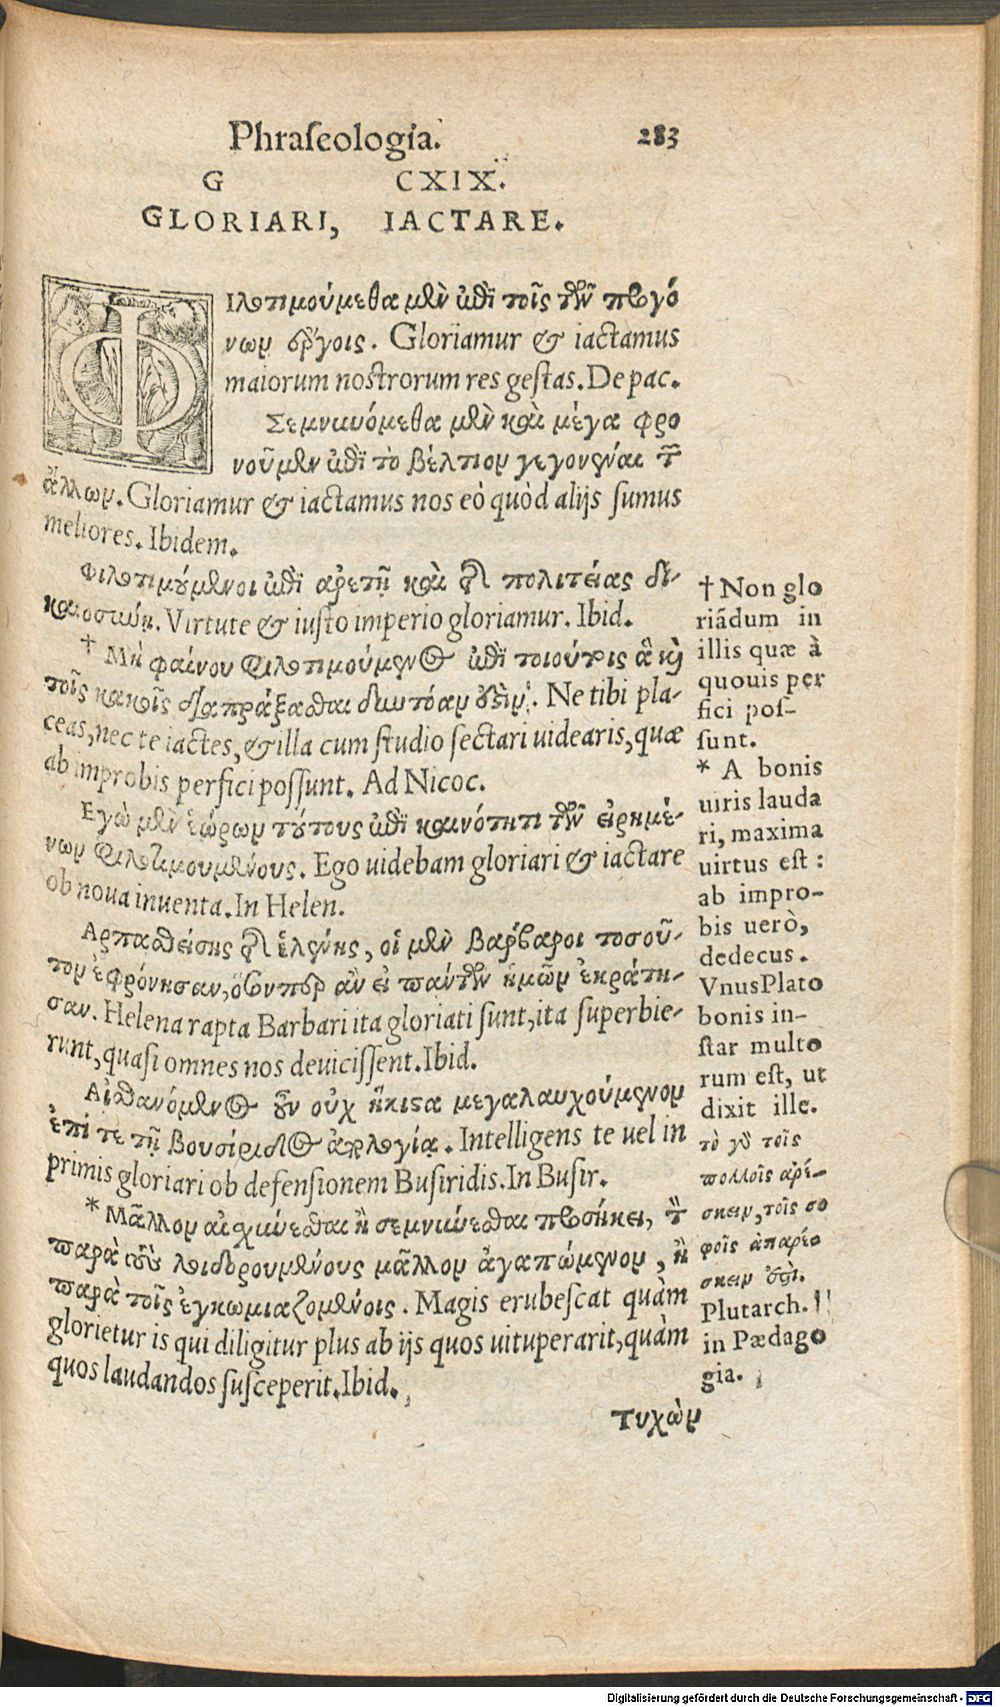 Phraſeologia. 283
G CXIX.
GLORIARI, IACTARE.
Φιλοτιμούμεθα μὲν ἐπὶ τοῖς τῶν προγό
νων ἔργοις. Gloriamur & iactamus
maiorum nostrorum res geſtas. De pac.
Σεμνυνόμεθα μὲν καὶ μέγα φρο
νοῦμεν ἐπὶ τὸ βέλτιον γεγονέναι τῶν
ἄλλων. Gloriamur & iactamus nos eò quòd alijs ſumus
meliores. Ibidem.
Φιλοτιμούμενοι ἐπὶ ἀρετῇ καὶ τῆς πολιτείας δι-
καιοσύνη. Virtute & iuſto imperio gloriamur. Ibid.
† Μὴ φαίνου φιλοτιμούμενος ἐπὶ τοιούτοις ἃ καὶ
τοῖς κακοῖς διαπράξασθαι δυνατόν ἐστιν. Ne tibi pla-
ceas, nec te iactes, & illa cum ſtudio ſectari uidearis, quæ
ab improbis perfici poſſunt. Ad Nicoc.
Εγὼ μὲν ἑώρων τούτους ἐπὶ καινότητι τῶν εἰρημέ-
νων φιλοτιμουμένους. Ego uidebam gloriari & iactare
ob noua inuenta. In Helen.
Αρπασθείσης τῆς ἑλένης, οἱ μὲν βάρβαροι τοσοῦ-
τον ἐφρόνησαν, ὅσονπερ ἂν εἰ πάντων ἡμῶν ἐκράτη-
σαν. Helena rapta Barbari ita gloriati ſunt, ita ſuperbie-
runt, quaſi omnes nos deuiciſſent. Ibid.
Αἰσθανόμενος οὖν οὐχ ἥκιστα μεγαλαυχούμενον
ἐπί τε τῇ βουσίριδος ἀπολογίᾳ. Intelligens te uel in
primis gloriari ob defenſionem Buſiridis. In Buſir.
* Μᾶλλον αἰσχύνεσθαι ἢ σεμνύνεσθαι προσήκει, τὸν
παρὰ τοὺς λοιδορουμένους μᾶλλον ἀγαπώμενον, ἢ
παρὰ τοῖς ἐγκωμιαζομένοις. Magis erubeſcat quàm
glorietur is qui diligitur plus ab ijs quos uituperarit, quàm
quos laudandos ſuſceperit. Ibid.
Τυχὼν
† Non glo
riãdum in
illis quæ à
quouis per
fici poſ-
ſunt.
* A bonis
uiris lauda
ri, maxima
uirtus est:
ab impro-
bis uerò,
dedecus.
Vnus Plato
bonis in-
ſtar multo
rum eſt, ut
dixit ille.
τὸ γὰρ τοῖς
πολλοῖς ἀρέ-
σκειν, τοῖς σο
φοῖς ἀπαρέσ
σκειν ἐστί.
Plutarch.
in Pædago
gia.
Digitalisierung gefördert durch die Deutsche Forschungsgemeinschaft - DFG